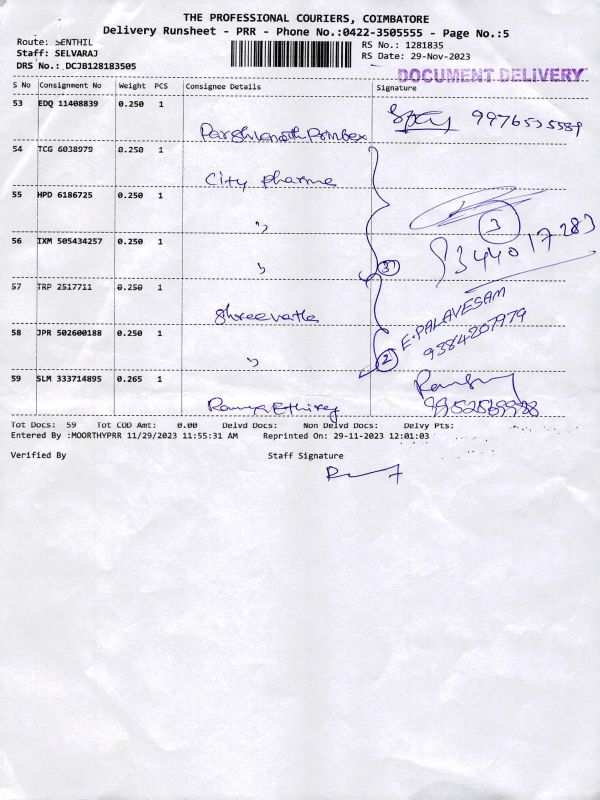 THE PROFESSIONAL COURIERS, COIMBATORE
Delivery Runsheet - PRR - Phone No.:0422-3505555 - Page No.:5
Route: SENTHIL
Staff: SELVARAJ
DRS No.: DCJB128183505
RS No.: 1281835
RS Date: 29-Nov-2023
DOCUMENT DELIVERY
S No Consignment No Weight PCS Consignee Details Signature
53 EDQ 11408839 0.250 1
54 TCG 6038979 0.250 1
City pharma
55 HPD 6186725 0.250 1
"
3
56 IXM 505434257 0.250 1
"
3
57 TRP 2517711 0.250 1
E. PALAVESAM
9384207979
58 JPR 502600188 0.250 1
"
2
59 SLM 333714895 0.265 1
Tot Docs: 59 Tot COD Amt: 0.00 Delvd Docs: Non Delvd Docs: Delvy Pts:
Entered By :MOORTHYPRR 11/29/2023 11:55:31 AM Reprinted On: 29-11-2023 12:01:03
Verified By Staff Signature